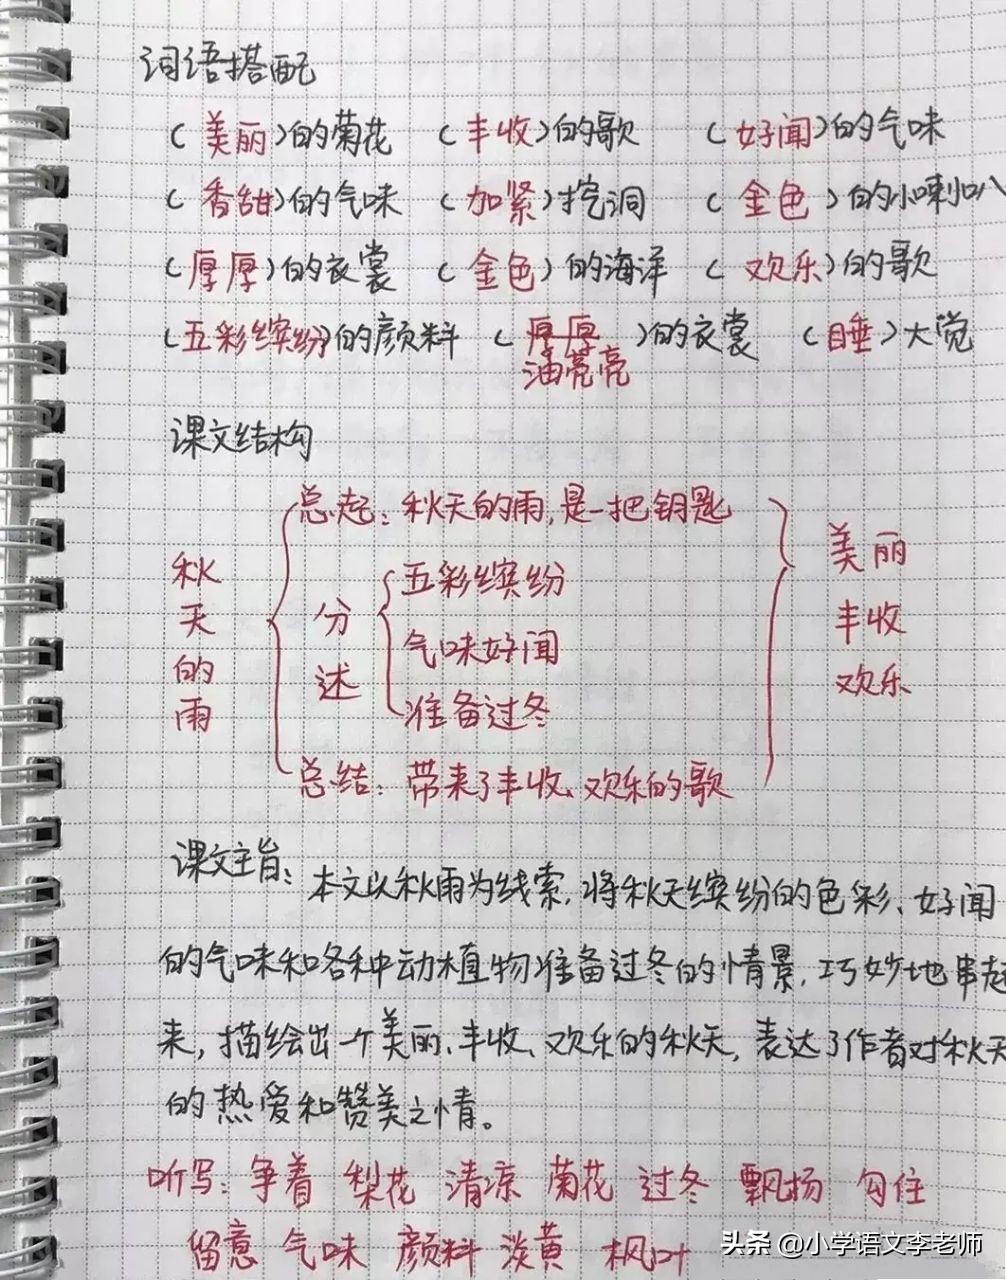 词语搭配
(美丽)的菊花 (丰收)的歌 (好闻)的气味
(香甜)的气味 (加紧)挖洞 (金色)的小喇叭
(厚厚)的衣裳 (金色)的海洋 (欢乐)的歌
(五彩缤纷)的颜料 (厚厚)的衣裳 (睡)大觉
油亮亮
课文结构
秋天的雨
总起:秋天的雨,是一把钥匙
分述
五彩缤纷
气味好闻
准备过冬
总结:带来了丰收、欢乐的歌
美丽
丰收
欢乐
课文主旨:本文以秋雨为线索,将秋天缤纷的色彩、好闻
的气味和各种动植物准备过冬的情景,巧妙地串起
来,描绘出一个美丽、丰收、欢乐的秋天,表达了作者对秋天
的热爱和赞美之情。
听写:争着 梨花 清凉 菊花 过冬 飘扬 勾住
留意 气味 颜料 淡黄 枫叶
头条 @小学语文李老师